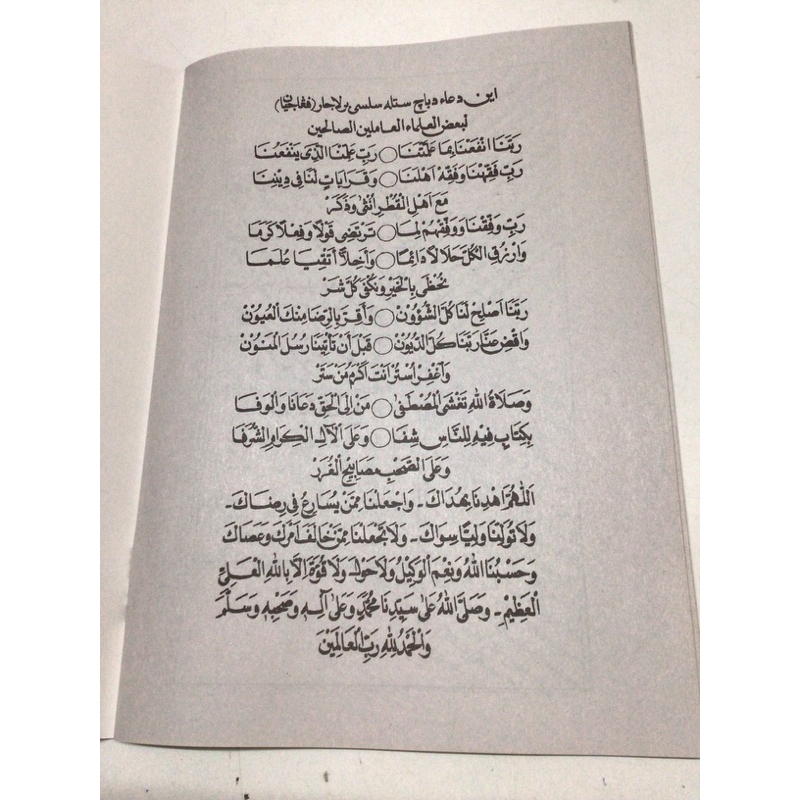 اين دعاء دباچ ستله سلسي برلاجر (ڤڠاجين)
لبعض العلماء العاملين الصالحين
رَبَّنَا انْفَعْنَا بِمَا عَلَّمْتَنَا ○ رَبِّ عَلِّمْنَا الَّذِى يَنْفَعُنَا
رَبِّ فَقِّهْنَا وَفَقِّهْ اَهْلَنَا ○ وَقَرَابَاتٍ لَنَا فِى دِيْنِنَا
مَعَ اَهْلِ الْقُطْرِ اُنْثَى وَذَكَرْ
رَبِّ وَفِّقْنَا وَوَفِّقْهُمْ لِمَا ○ تَرْتَضِى قَوْلًا وَفِعْلًا كَرَمَا
وَارْزُقِ الْكُلَّ حَلَالًا دَائِمًا ○ وَاَخِلَّا أَتْقِيَا عُلَمَا
نُحْظَى بِالْخَيْرِ وَنُكْفَى كُلَّ شَرّ
رَبَّنَا اَصْلِحْ لَنَا كُلَّ الشُّؤُوْنْ ○ وَاَقِرَّ بِالرِّضَا مِنْكَ الْعُيُوْنْ
وَاقْضِ عَنَّا رَبَّنَا كُلَّ الدُّيُوْنْ ○ قَبْلَ أَنْ تَأْتِيَنَا رُسُلُ الْمَنُوْنْ
وَاغْفِرْ اُسْتُرْ اَنْتَ اَكْرَمُ مَنْ سَتَرْ
وَصَلَاةُ اللهِ تَغْشَى الْمُصْطَفَى ○ مَنْ اِلَى الْحَقِّ دَعَانَا وَالْوَفَا
بِكِتَابٍ فِيْهِ لِلنَّاسِ شِفَا ○ وَعَلَى الْآلِ الْكِرَامِ الشُّرَفَا
وَعَلَى الصَّحْبِ مَصَابِيْحِ الْغُرَرْ
اَللّٰهُمَّ اهْدِنَا بِهُدَاكَ - وَاجْعَلْنَا مِمَّنْ يُسَارِعُ فِى رِضَاكَ -
وَلَا تُوَلِّنَا وَلِيًّا سِوَاكَ - وَلَا تَجْعَلْنَا مِمَّنْ خَالَفَ اَمْرَكَ وَعَصَاكَ
وَحَسْبُنَا اللهُ وَنِعْمَ الْوَكِيْلُ وَلَا حَوْلَ وَلَا قُوَّةَ اِلَّا بِاللهِ الْعَلِيِّ
الْعَظِيْمِ - وَصَلَّى اللهُ عَلَى سَيِّدِنَا مُحَمَّدٍ وَعَلَى آلِهِ وَصَحْبِهِ وَسَلَّمَ
وَالْحَمْدُ لِلهِ رَبِّ الْعَالَمِيْنَ